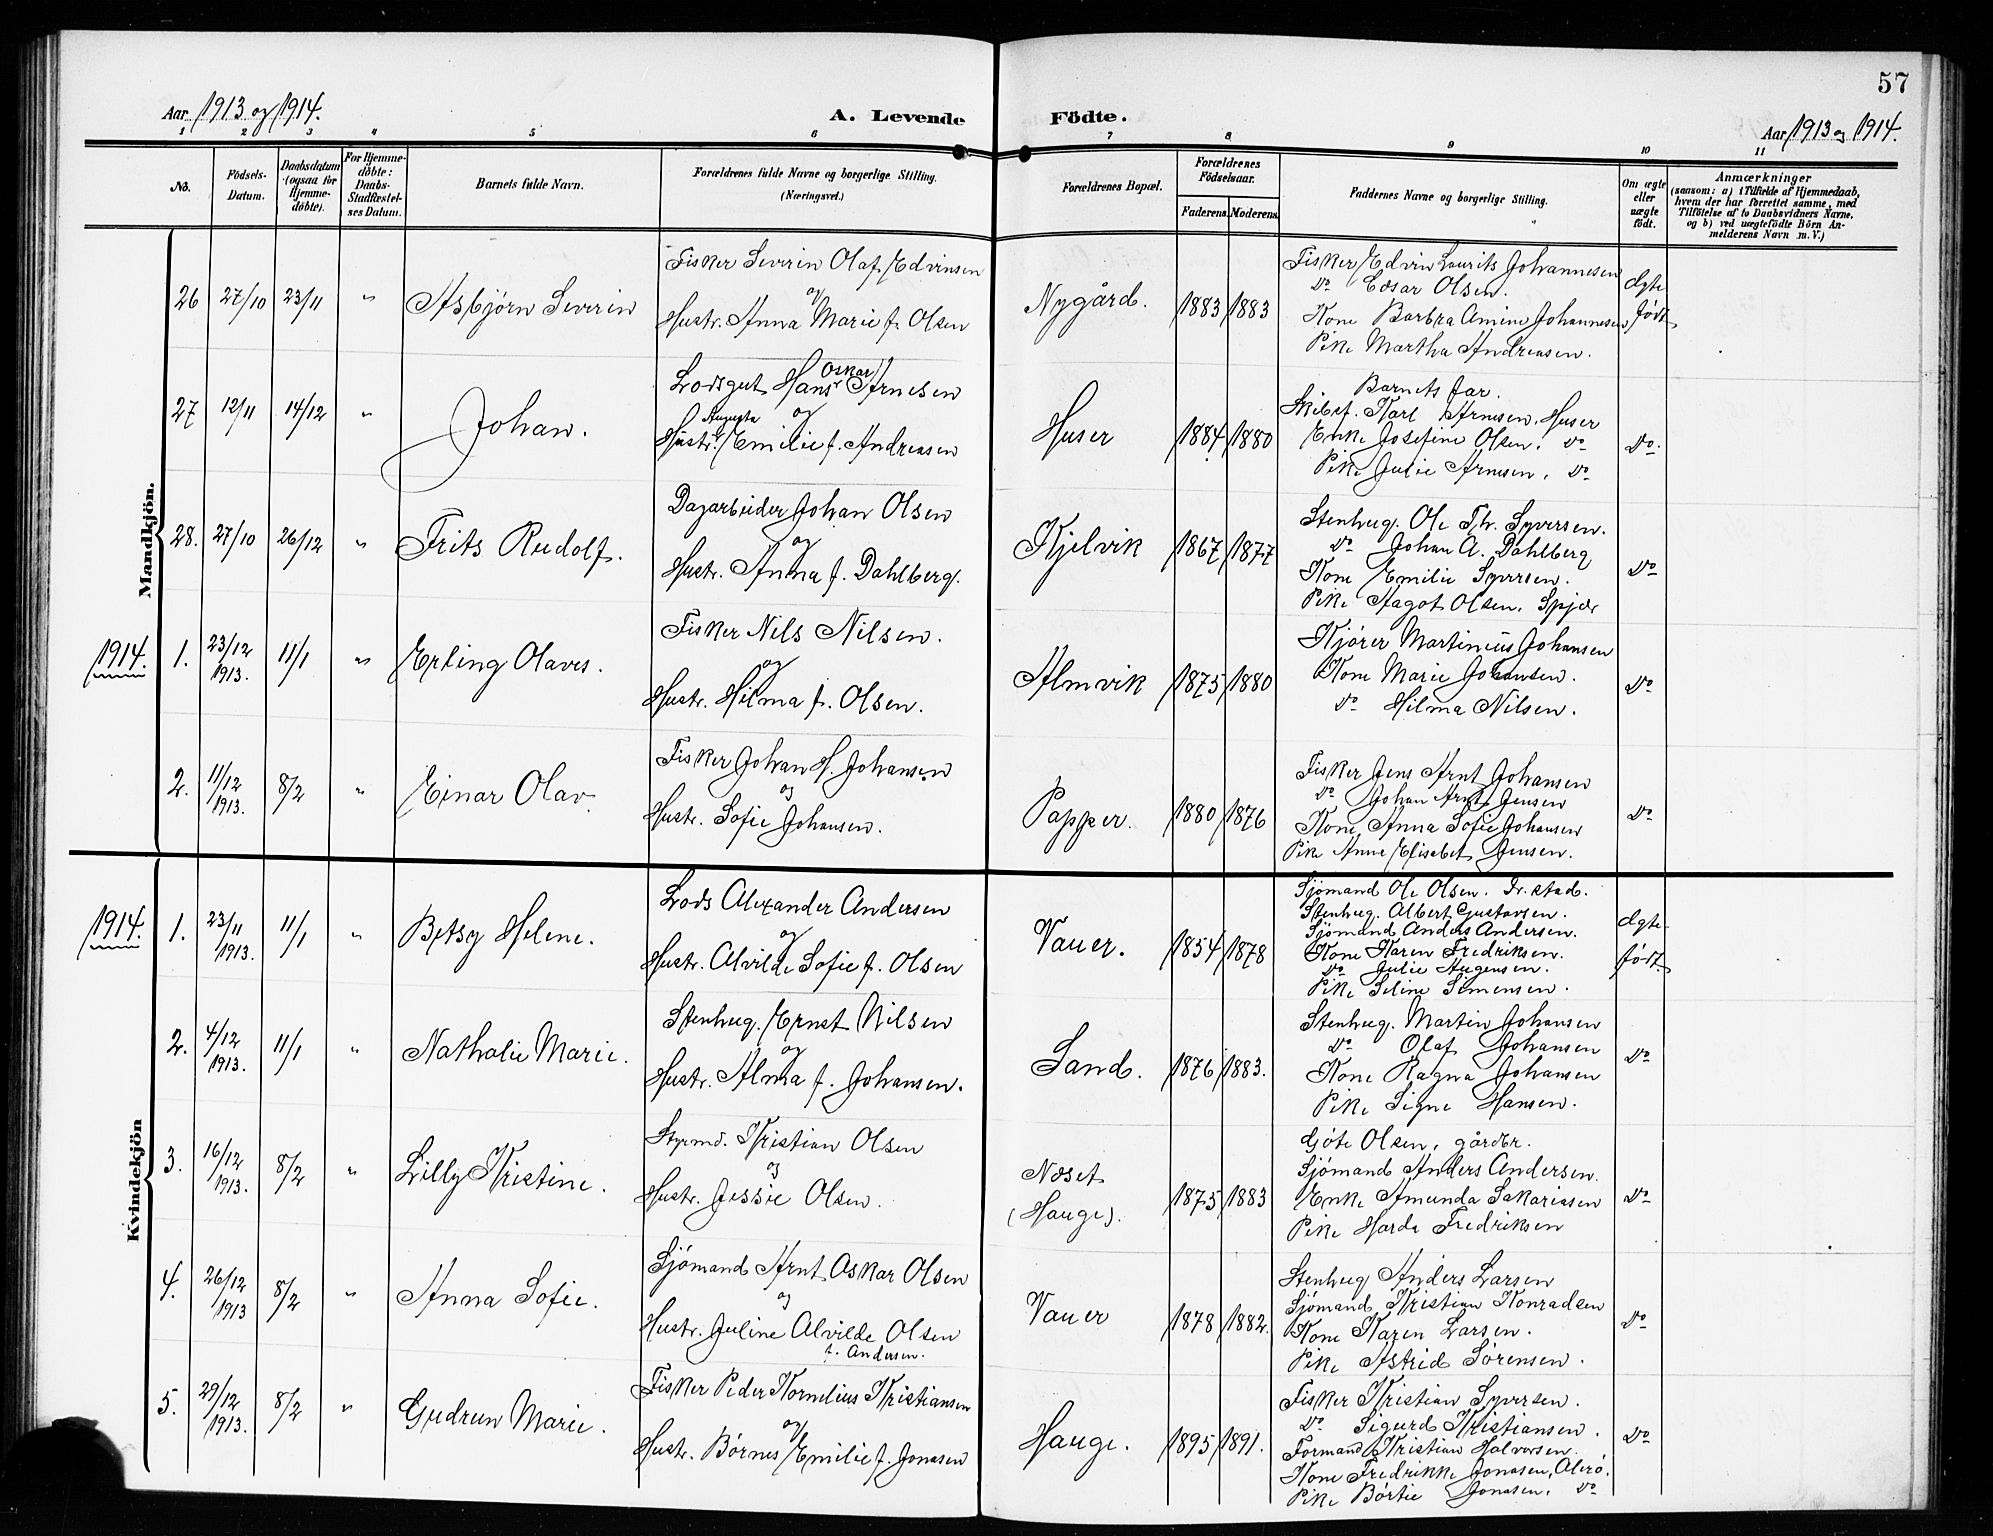 57
Aar 1913 og 1914.
A. Levende Födte.
Aar 1913 og 1914.
1 2 3 4 5 6 7 8 9 10 11
No.
Födsels-Datum.
Daabsdatum (ogsaa for Hjemme-döbte).
For Hjemme-döbte: Daabs-Stadfæstel-ses Datum.
Barnets fulde Navn.
Forældrenes fulde Navne og borgerlige Stilling.
(Næringsvei.)
Forældrenes Bopæl.
Forældrenes Födselsaar.
Faderens. Moderens.
Faddernes Navne og borgerlige Stilling.
Om ægte eller uægte födt.
Anmærkninger
(saasom: a) i Tilfælde af Hjemmedaab, hvem der har forrettet samme, med Tilföielse af to Daabsvidners Navne, og b) ved uægtefödte Börn Anmelderens Navn m. V.)
Mandkjön.
26 27/10 23/11 " Asbjørn Severin
Fisker Severin Olaf Edvinsen
og
Hustr. Anna Marie f. Olsen
Nygård. 1883 1883
Fisker Edvin Laurits Johannesen
Do Edsar Olsen.
Kone Barbra Amine Johannesen
Pike Martha Andreasen.
Ægte født
27 12/11 14/12 " Johan.
Lodsgut Hans Oskar Arnesen
og
Hustr. Augusta Emilie f. Andreasen
Huser 1884 1880
Barnets far.
Skibsf. Karl Arnesen, Huser
Enke Josefine Olsen. Do
Pike Julie Arnesen. Do
Do.
28. 27/10 26/12 " Frits Rudolf.
Dagarbeider Johan Olsen
og
Hustr. Anna f. Dahlberg.
Kjelvik 1867 1877
Stenhug. Ole Th. Syversen.
Do Johan A. Dahlberg
Kone Emilie Syversen.
Pike Aagot Olsen. Spjær
Do
1914. 1. 23/12 1913. 11/1 " Erling Olaves.
Fisker Nils Nilsen.
og
Hustr. Hilma f. Olsen.
Almvik 1875 1880
Kjører Martinius Johansen
Kone Marie Johansen.
Do Hilma Nilsen.
Do
2. 11/12 1913. 8/2 " Einar Olav.
Fisker Johan H. Johansen
og
Hustr. Sofie Johansen.
Papper. 1880 1876
Fisker Jens Arnt Johansen
Do Johan Arnt Jensen
Kone Anna Sofie Johansen
Pike Anne Elisabet Jensen.
Do
Kvindekjön
1914. 1. 23/11 1913. 11/1 " Betsy Helene.
Lods Alexander Andersen
og
Hustr. Alvilde Sofie f. Olsen
Vauer. 1854 1878
Sjømand Ole Olsen. Fr.stad.
Stenhug. Albert Gustavsen.
Sjømand Anders Andersen.
Kone Karen Fredriksen.
Do Julie Augensen.
Pike Seline Simensen.
Ægte født.
2. 4/12 1913. 11/1 " Nathalie Marie.
Stenhug. Ernst Nilsen
og
Hustr. Alma f. Johansen.
Sand. 1876 1883.
Stenhug. Martin Johansen
Do Olaf Johansen
Kone Ragna Johansen
Pike Signe Hansen.
Do
3. 16/12 1913. 8/2 " Lilly Kristine.
Styrmd. Kristian Olsen
og
Hustr. Jessie Olsen.
Næset (Hauge). 1875 1883
Gøte Olsen, gårdbr.
Sjømand Anders Andersen.
Enke Amunda Sakariasen
Pike Harda Fredriksen
Do
4. 26/12 1913 8/2 " Anna Sofie.
Sjømand Arnt Oskar Olsen
og
Hustr. Juline Alvilde Olsen
f. Andersen.
Vauer 1878 1882.
Stenhug Anders Larsen
Sjømand Kristian Konradsen
Kone Karen Larsen.
Pike Astrid Sørensen.
Do
5. 29/12 1913. 8/2 " Gudrun Marie.
Fisker Peder Kornelius Kristiansen
og
Hustr. Børnes Emilie f. Jonasen
Hauge. 1895 1891.
Fisker Kristian Syversen.
Do Sigurd Kristiansen.
Formand Kristian Halvorsen.
Kone Fredrikke Jonasen, Alerø.
Pike Børtie Jonasen. Do
Do